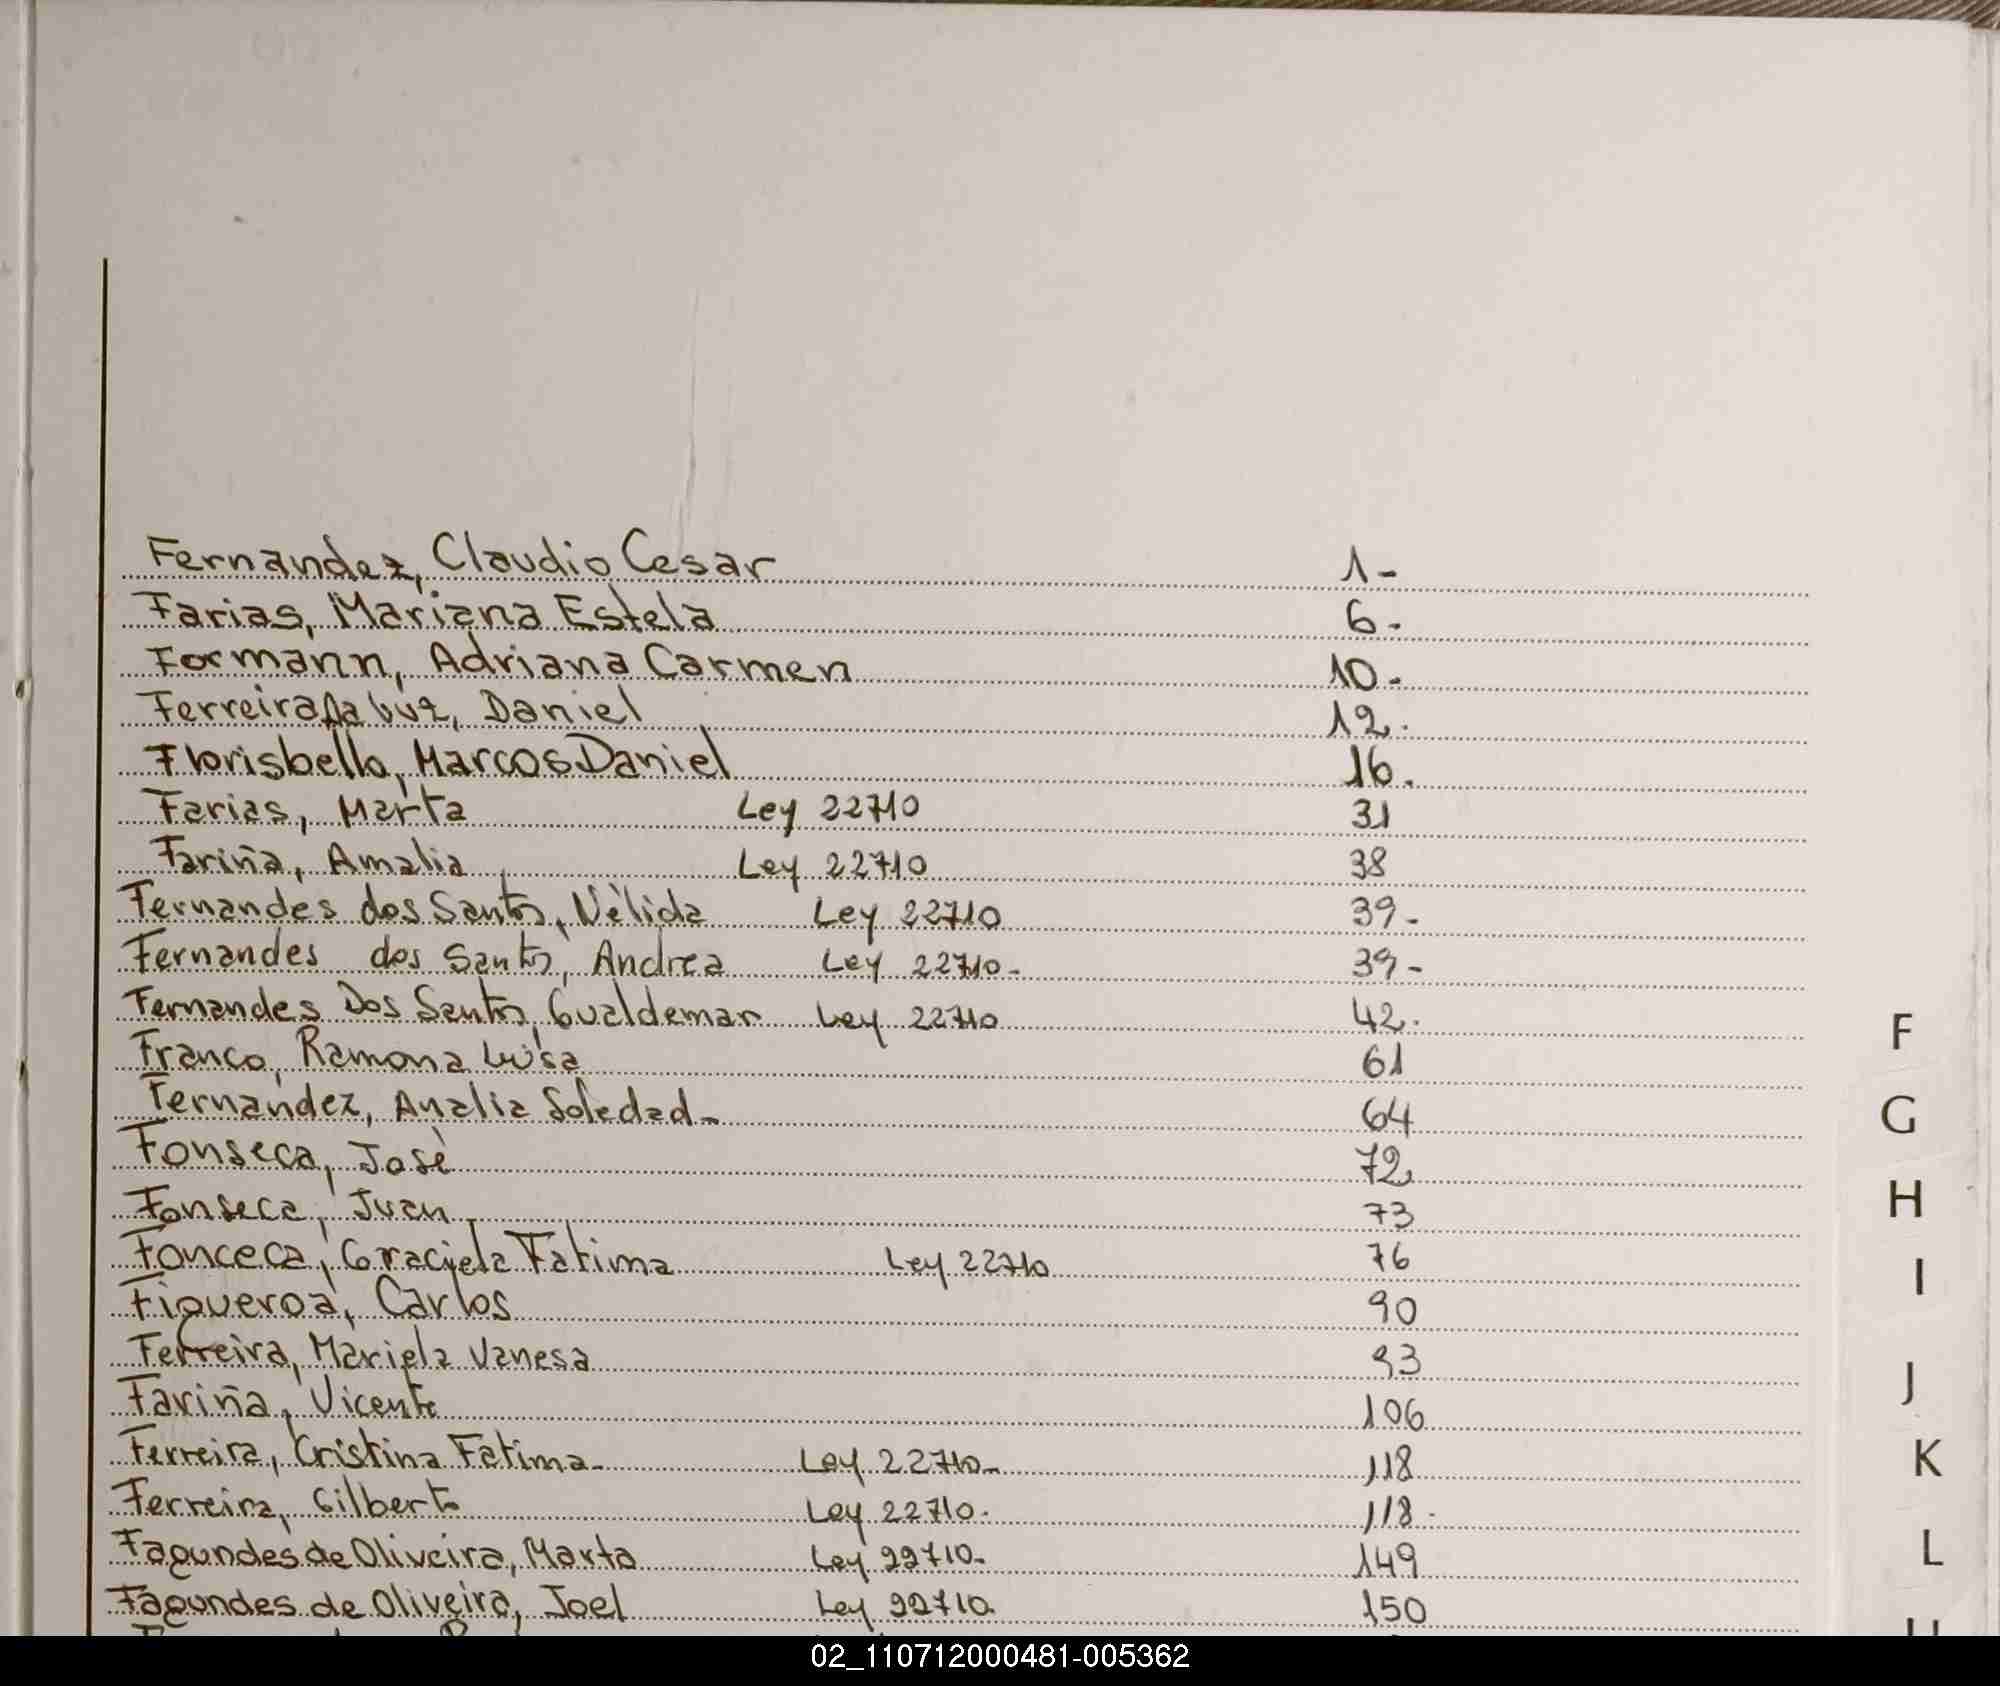 Fernandez, Claudio Cesar 1-
Farias, Mariana Estela 6-
Formann, Adriana Carmen 10-
Ferreira Da Luz, Daniel 12.
Florisbello, Marcos Daniel 16.
Farias, Marta Ley 22710 31
Fariña, Amalia Ley 22710 38
Fernandes dos Santos, Nélida Ley 22710 39-
Fernandes dos Santos, Andrea Ley 22710- 39-
Fernandes Dos Santos, Gualdemar Ley 22710 42.
Franco, Ramona Luisa 61
Fernandez, Analia Soledad- 64
Fonseca, José 72
Fonseca, Juan 73
Fonceca, Graciela Fatima Ley 22710 76
Figueroa, Carlos 90
Ferreira, Mariela Vanesa 93
Fariña, Vicente 106
Ferreira, Cristina Fatima- Ley 22710- 118
Ferreira, Gilberto Ley 22710. 118-
Fagundes de Oliveira, Marta Ley 22710- 149
Fagundes de Oliveira, Joel Ley 22710. 150
F
G
H
I
J
K
L
02_110712000481-005362